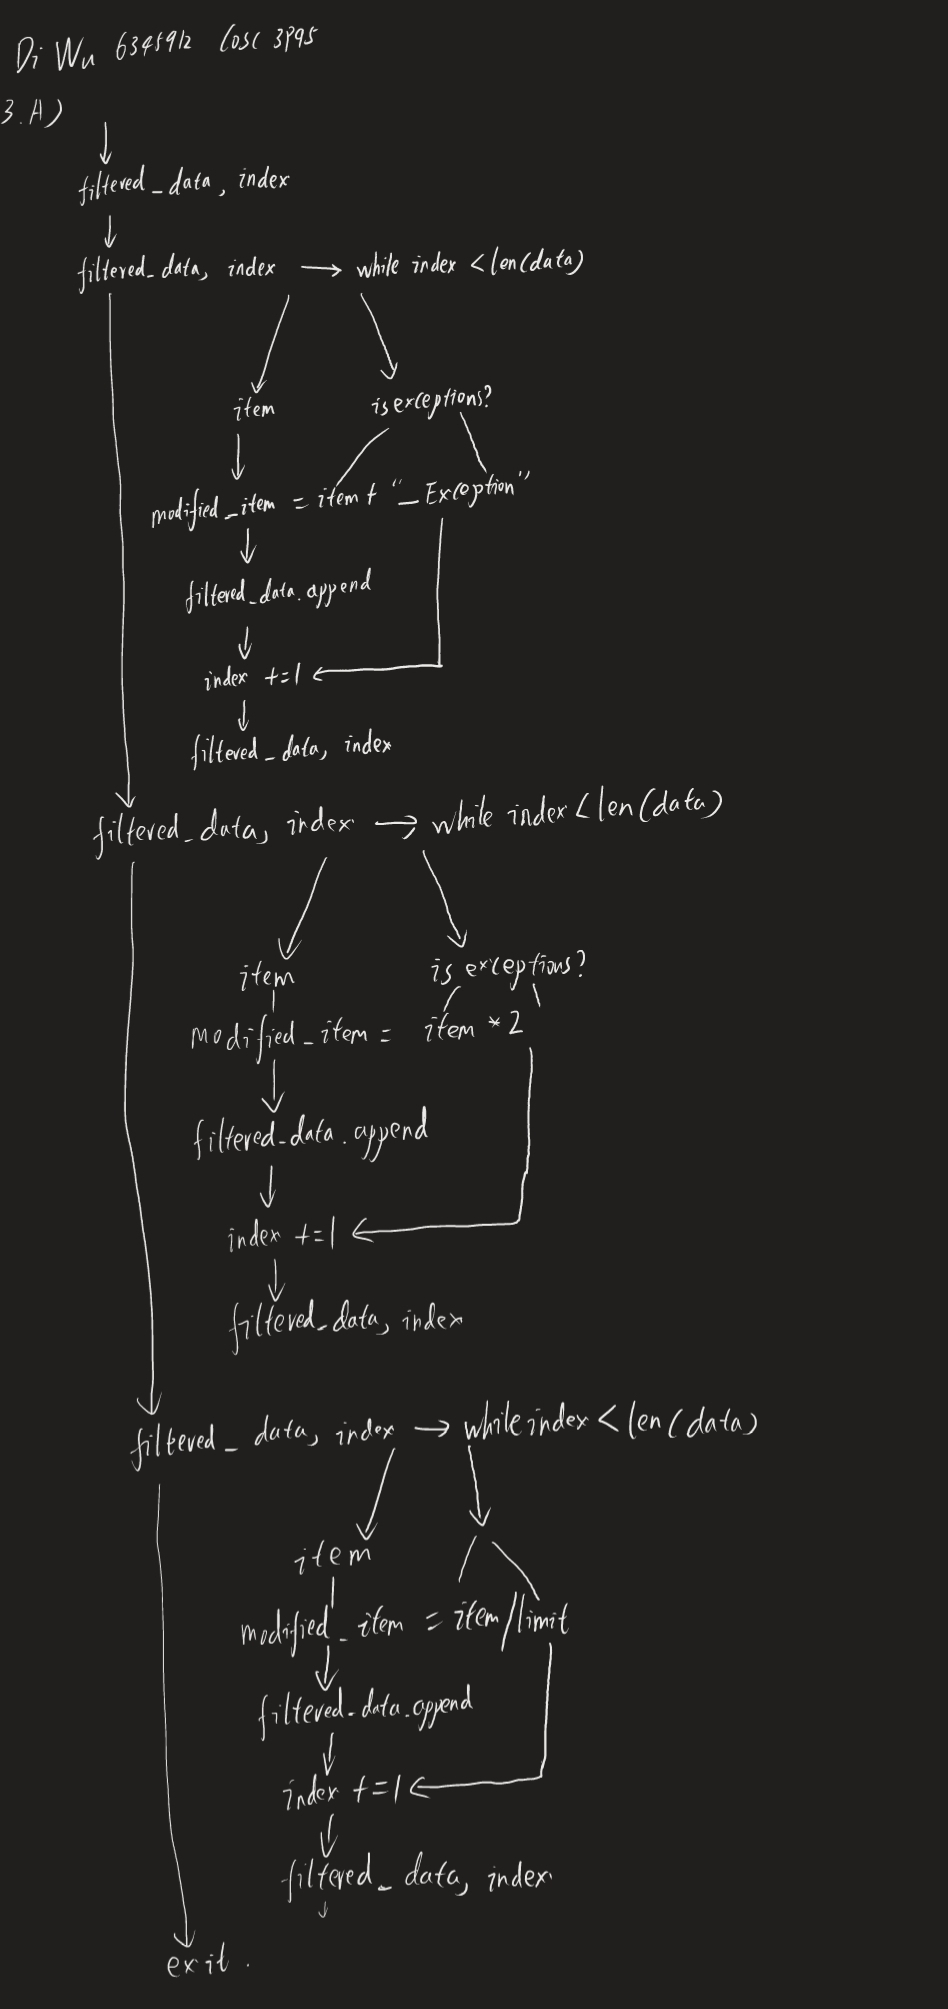 Di Wu 6345912 Cosc 3P95
3.A)
filtered_data, index
filtered_data, index → while index < len(data)
item
is exceptions?
modified_item = item + "_Exception"
filtered_data.append
index +=1
filtered_data, index
filtered_data, index → while index < len(data)
item
is exceptions?
modified_item = item * 2
filtered_data.append
index +=1
filtered_data, index
filtered_data, index → while index < len(data)
item
modified_item = item/limit
filtered_data.append
index +=1
filtered_data, index
exit.